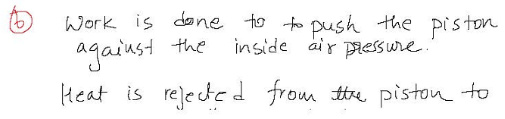 (b) Work is done to to push the piston
against the inside air pressure.
Heat is rejected from the piston to